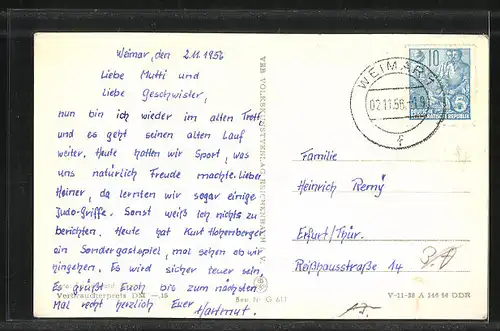 Weimar, den 2.11.1956
Liebe Mutti und
Liebe Geschwister,
nun bin ich wieder im alten Trott
und es geht seinen alten Lauf
weiter. Heute hatten wir Sport, was
uns natürlich Freude machte. Lieber
Heiner, da lernten wir sogar einige
Judo-Griffe. Sonst weiß ich nichts zu
berichten. Heute hat Kurt Hohenberger
ein Sondergastspiel, mal sehen ob wir
hingehen. Es wird sicher teuer sein.
Es grüßt Euch bis zum nächsten
Mal recht herzlich Euer Hartmut.
Verbraucherpreis DM —.15
VEB VOLKSKUNSTVERLAG REICHENBACH I. V.
Best. Nr. G 611
WEIMAR 2
02.11.56.
f
10
DEUTSCHE DEMOKRATISCHE REPUBLIK
5
Familie
Heinrich Remy
Erfurt/Thür.
Reißhausstraße 14
V-11-28 A 146 56 DDR